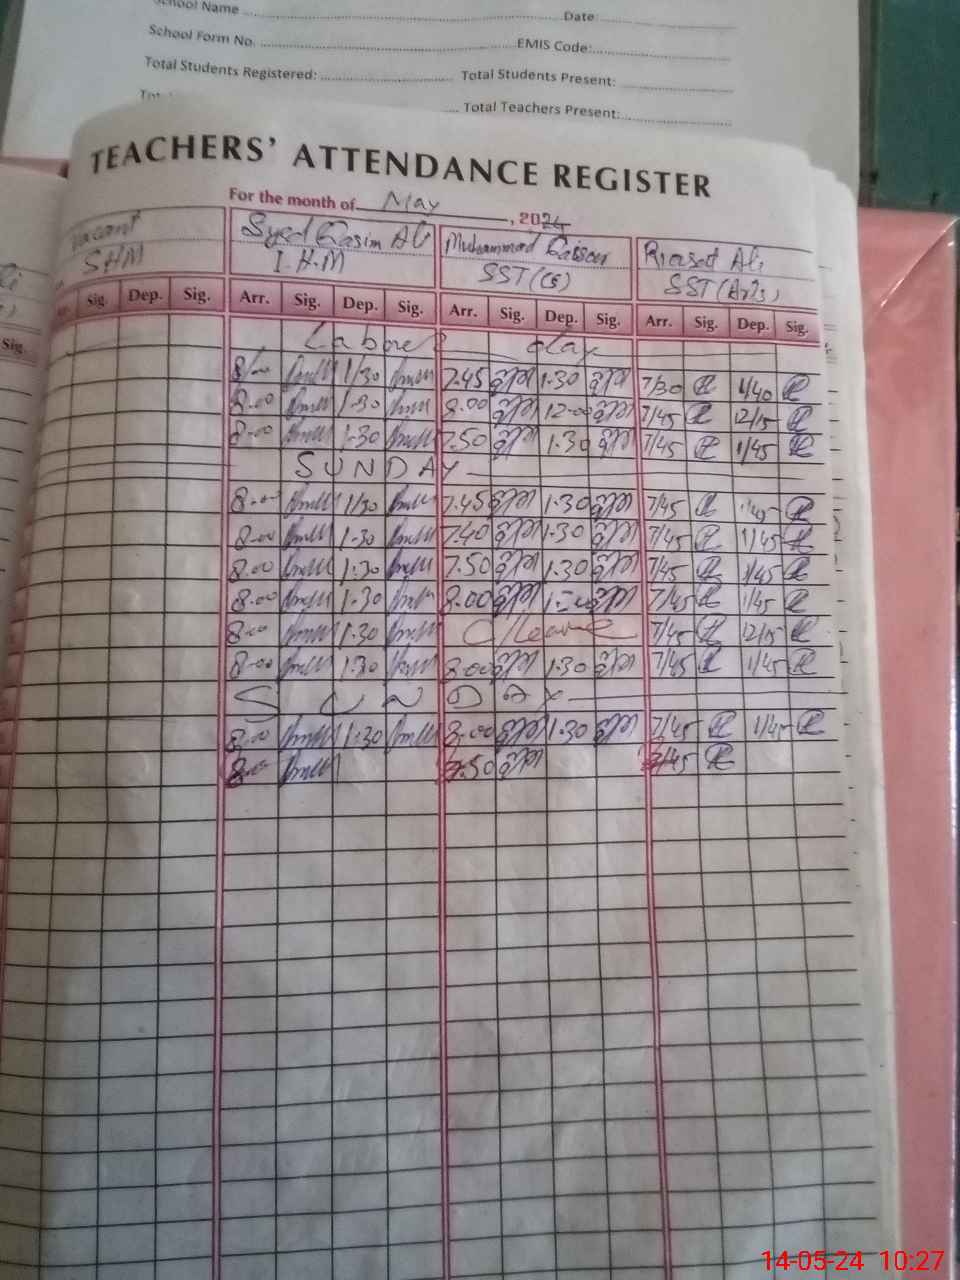 School Name Date
School Form No. EMIS Code:
Total Students Registered: Total Students Present:
Total Teachers Present:
TEACHERS' ATTENDANCE REGISTER
For the month of May, 2024
Vacant Syed Qasim Ali Muhammad Riasat Ali
SHM I.H.M SST(CS) SST(Arts)
Sig. Sig. Dep. Sig. Arr. Sig. Dep. Sig. Arr. Sig. Dep. Sig. Arr. Sig. Dep. Sig.
Labour Day
8/00 1/30 7.45 1.30 7/30 1/40
8.00 1.30 8.00 12.00 7/45 12/15
8.00 1.30 7.50 1.30 7/45 1/45
SUNDAY
8.00 1/30 7.45 1.30 7/45 1/45
8.00 1.30 7.40 1.30 7/45 1/45
8.00 1.30 7.50 1.30 7/45 1/45
8.00 1.30 8.00 7/45 1/45
8.00 1.30 C/Leave 7/45 12/15
8.00 1.30 8.00 1.30 7/45 1/45
SUNDAY
8.00 1.30 8.00 1.30 7/45 1/45
8.00 7.50 7/45
14-05-24 10:27